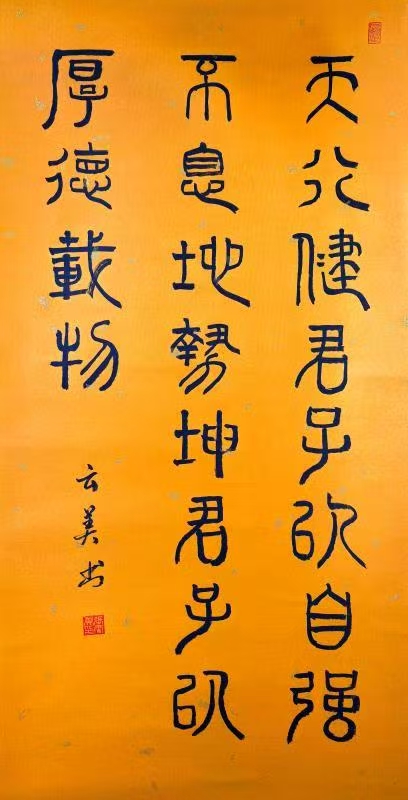 天行健君子以自强
不息地势坤君子以
厚德載物
云美书